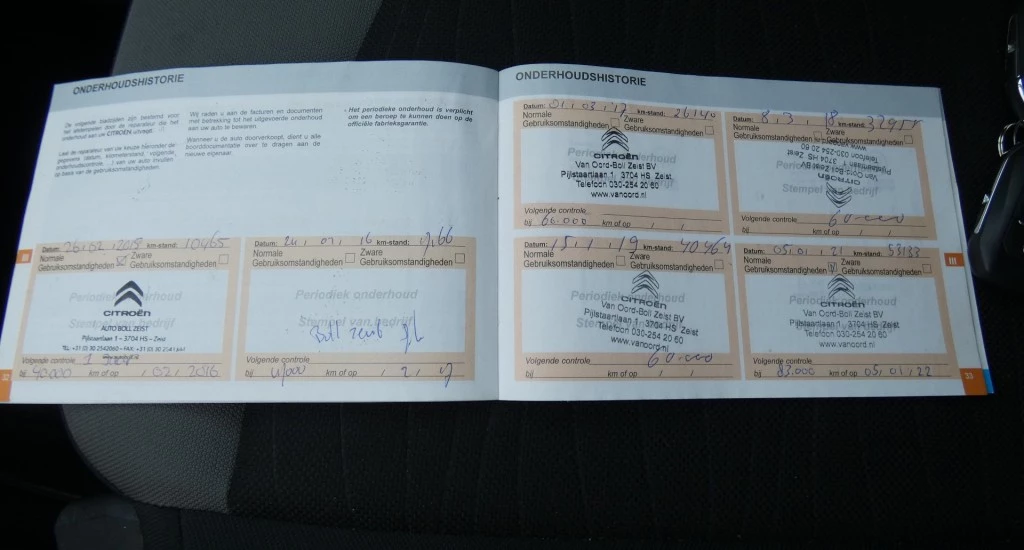 ONDERHOUDSHISTORIE
De volgende bladzijden zijn bestemd voor
het afstempelen door de reparateur die het
onderhoud van uw CITROËN uitvoert.
Laat de reparateur van uw keuze hieronder de
gegevens (datum, kilometerstand, volgende
onderhoudscontrole, ...) van de auto invullen
op basis van de gebruiksomstandigheden.
Wij raden u aan de facturen en documenten
met betrekking tot het uitgevoerde onderhoud
aan uw auto te bewaren.
Wanneer u de auto doorverkoopt, dient u alle
boorddocumentatie over te dragen aan de
nieuwe eigenaar.
- Het periodieke onderhoud is verplicht
om een beroep te kunnen doen op de
officiële fabrieksgarantie.
Datum: 26, 02, 2015 km-stand: 10465
Normale Zware
Gebruiksomstandigheden Gebruiksomstandigheden
Periodiek onderhoud
CITROËN
Stempel van bedrijf
AUTO BOLL ZEIST
Pijlstaartlaan 1 – 3704 HS – Zeist
Volgende controle
bij 40.000 km of op , 02, 2016
Datum: 16 km-stand:
Normale Zware
Gebruiksomstandigheden Gebruiksomstandigheden
Periodiek onderhoud
Stempel van bedrijf
Boll Zeist
Volgende controle
bij km of op , 2, 17
32
ONDERHOUDSHISTORIE
Datum: 01, 03, 17 km-stand: 26140
Normale Zware
Gebruiksomstandigheden Gebruiksomstandigheden
CITROËN
Van Oord-Boll Zeist BV
Pijlstaartlaan 1 3704 HS Zeist
Telefoon 030-254 20 60
www.vanoord.nl
Volgende controle
bij 60.000 km of op , ,
Datum: 8, 3, 18 km-stand:
Normale Zware
Gebruiksomstandigheden Gebruiksomstandigheden
www.vanoord.nl
Telefoon 030-254 20 60
Pijlstaartlaan 1 3704 HS Zeist
Van Oord-Boll Zeist BV
CITROËN
Stempel van bedrijf
Volgende controle 60.000
bij km of op , ,
Datum: 15, 1, 19 km-stand: 40464
Normale Zware
Gebruiksomstandigheden Gebruiksomstandigheden
Periodiek onderhoud
CITROËN
Van Oord-Boll Zeist BV
Pijlstaartlaan 1 3704 HS Zeist
Telefoon 030-254 20 60
www.vanoord.nl
Volgende controle 60.000
bij km of op , ,
Datum: 05, 01, 21 km-stand: 53133
Normale Zware
Gebruiksomstandigheden Gebruiksomstandigheden
Periodiek onderhoud
CITROËN
Van Oord-Boll Zeist BV
Pijlstaartlaan 1 3704 HS Zeist
Telefoon 030-254 20 60
www.vanoord.nl
Volgende controle
bij 83.000 km of op 05, 01, 22
III
33